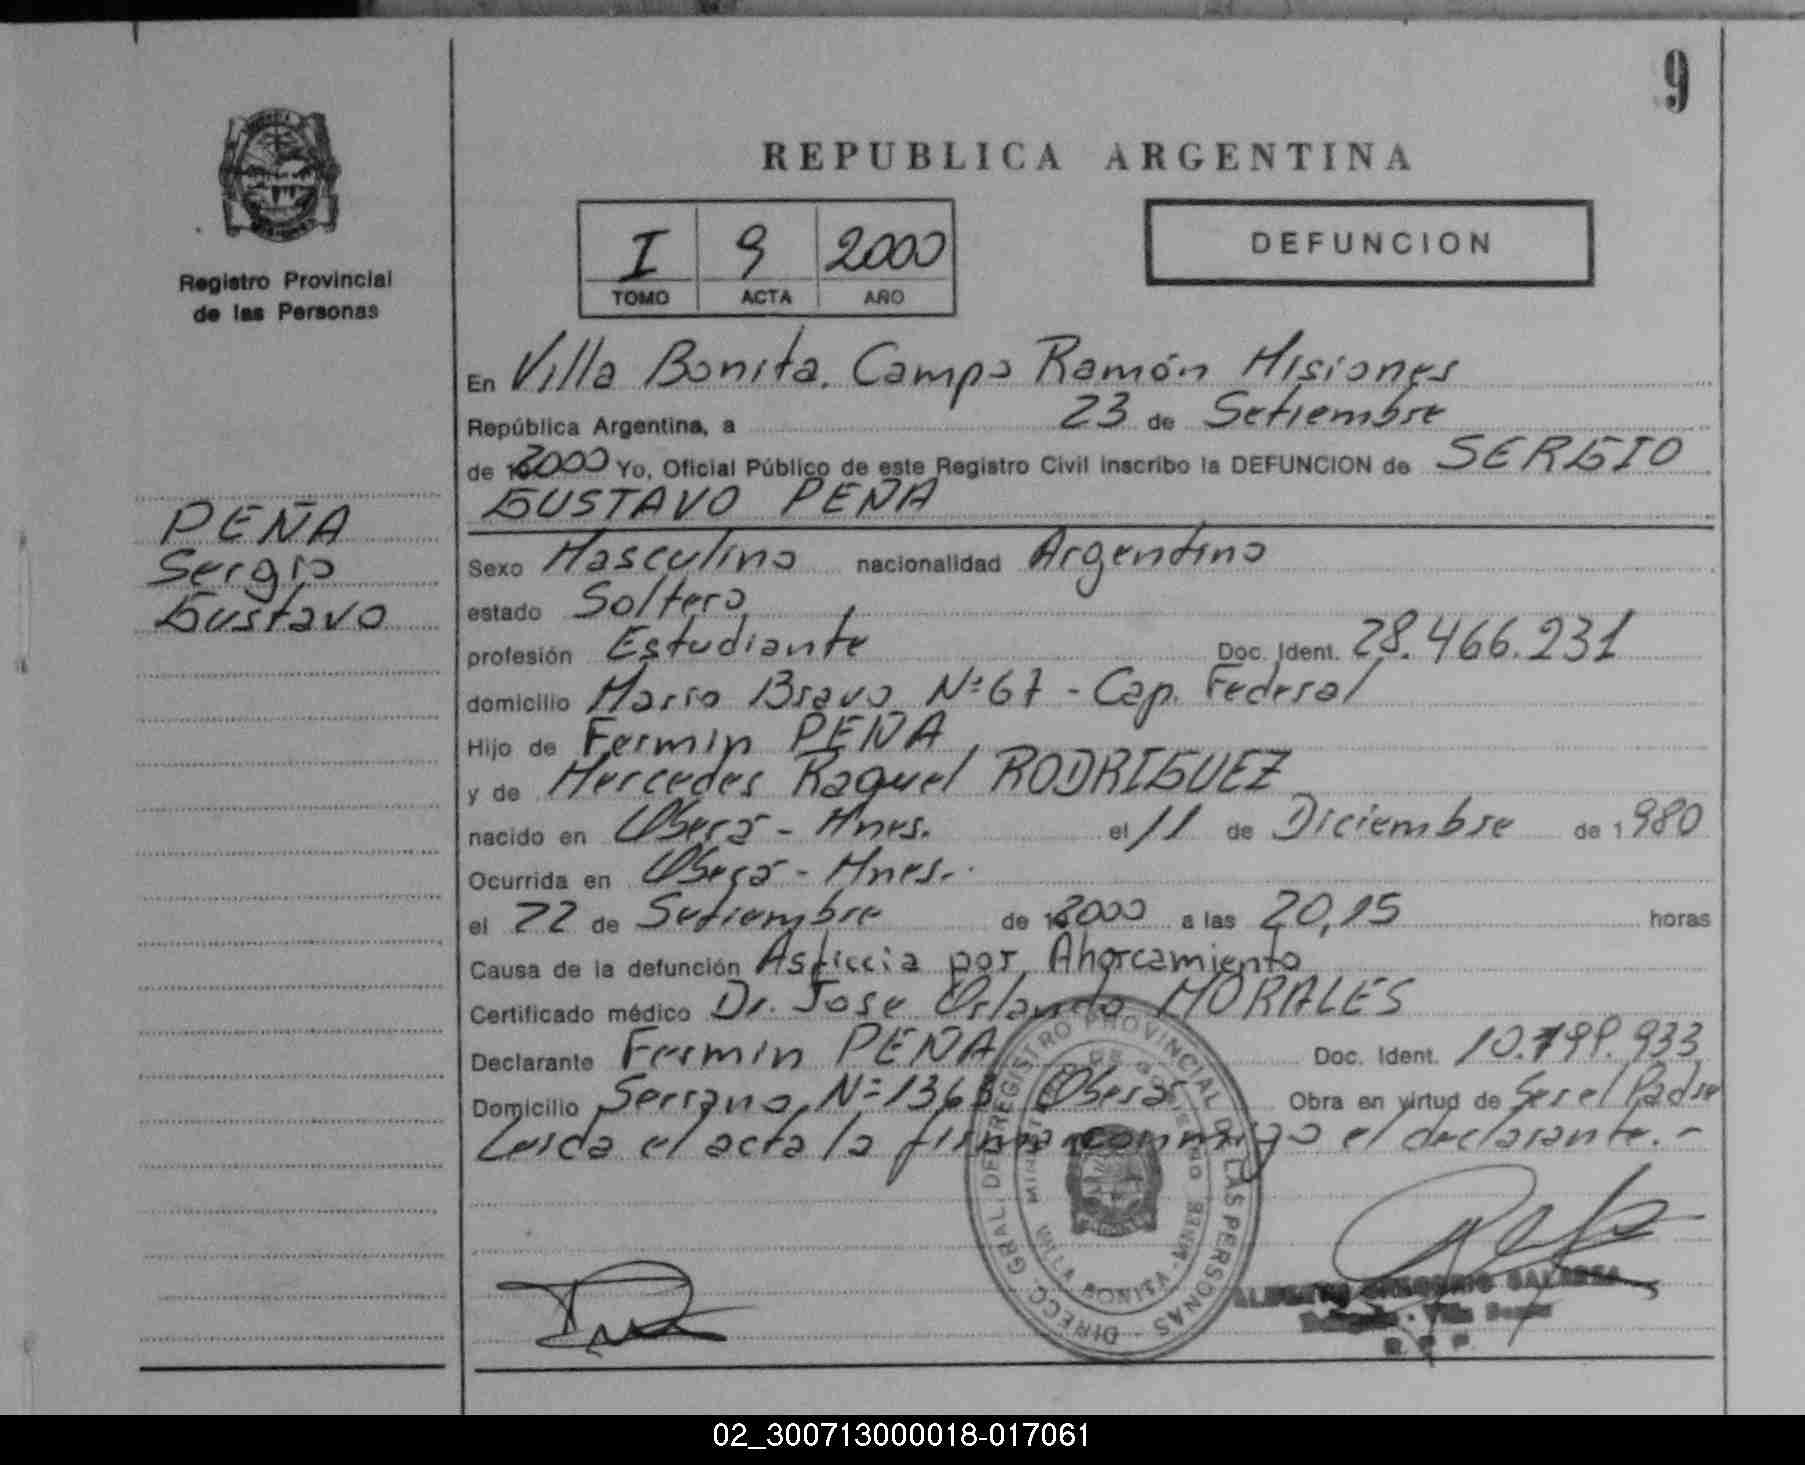 9
REPUBLICA ARGENTINA
I 9 2000
TOMO ACTA AÑO
DEFUNCION
Registro Provincial
de las Personas
PEÑA
Sergio
Gustavo
En Villa Bonita. Campo Ramón Misiones
República Argentina, a 23 de Setiembre
de 2000 Yo, Oficial Público de este Registro Civil inscribo la DEFUNCION de SERGIO
GUSTAVO PEÑA
Sexo Masculino nacionalidad Argentino
estado Soltero
profesión Estudiante Doc. Ident. 28.466.231
domicilio Mario Bravo Nº 67 - Cap. Federal
Hijo de Fermin PEÑA
y de Mercedes Raquel RODRIGUEZ
nacido en Oberá - Mnes. el 11 de Diciembre de 1980
Ocurrida en Oberá - Mnes.
el 22 de Setiembre de 2000 a las 20,15 horas
Causa de la defunción Asficcia por Ahorcamiento
Certificado médico Dr. Jose Orlando MORALES
Declarante Fermin PEÑA Doc. Ident. 10.199.933
Domicilio Serrano Nº 1363 Oberá Obra en virtud de Ser el Padre
Leida el acta la firma conmigo el declarante. -
DIRECC. GRAL. DE REGISTRO PROVINCIAL DE LAS PERSONAS
MINISTERIO DE GOBIERNO
VILLA BONITA - MNES
GREGORIO
Villa
R. P. P.
02_300713000018-017061